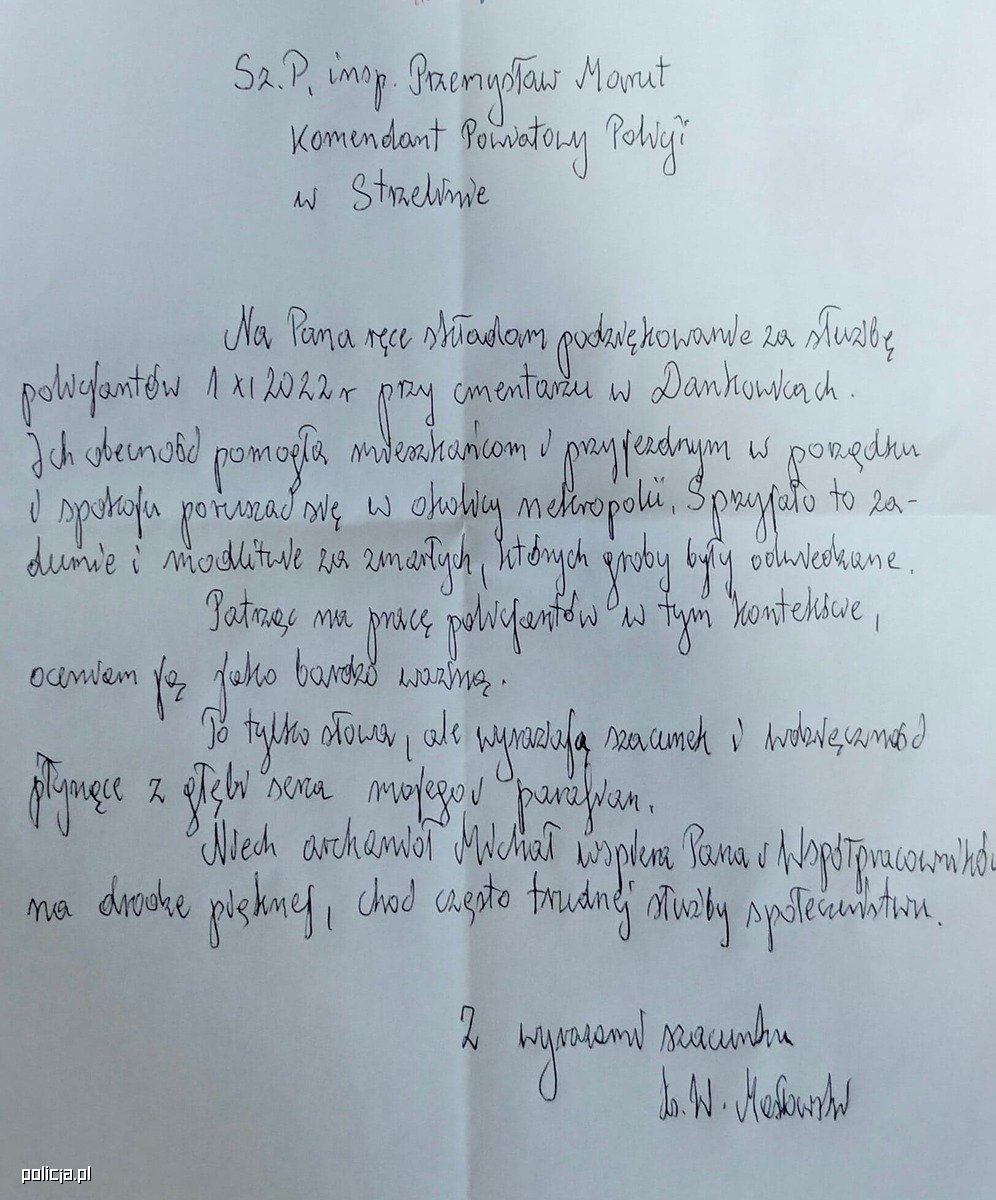 Sz.P. insp. Przemysław Marut
Komendant Powiatowy Policji
w Strzelinie
Na Pana ręce składam podziękowanie za służbę
policjantów 1 XI 2022 r przy cmentarzu w Dankowicach.
Ich obecność pomogła mieszkańcom i przyjezdnym w porządku
i spokoju poruszać się w okolicy nekropolii. Sprzyjało to za-
dumie i modlitwie za zmarłych, których groby były odwiedzane.
Patrząc na pracę policjantów w tym kontekście,
oceniam ją jako bardzo ważną.
To tylko słowa, ale wyrażają szacunek i wdzięczność
płynące z głębi serca mojego i parafian.
Niech archanioł Michał wspiera Pana i Współpracowników
na drodze pięknej, choć często trudnej służby społeczeństwu.
Z wyrazami szacunku
ks. W.
policja.pl